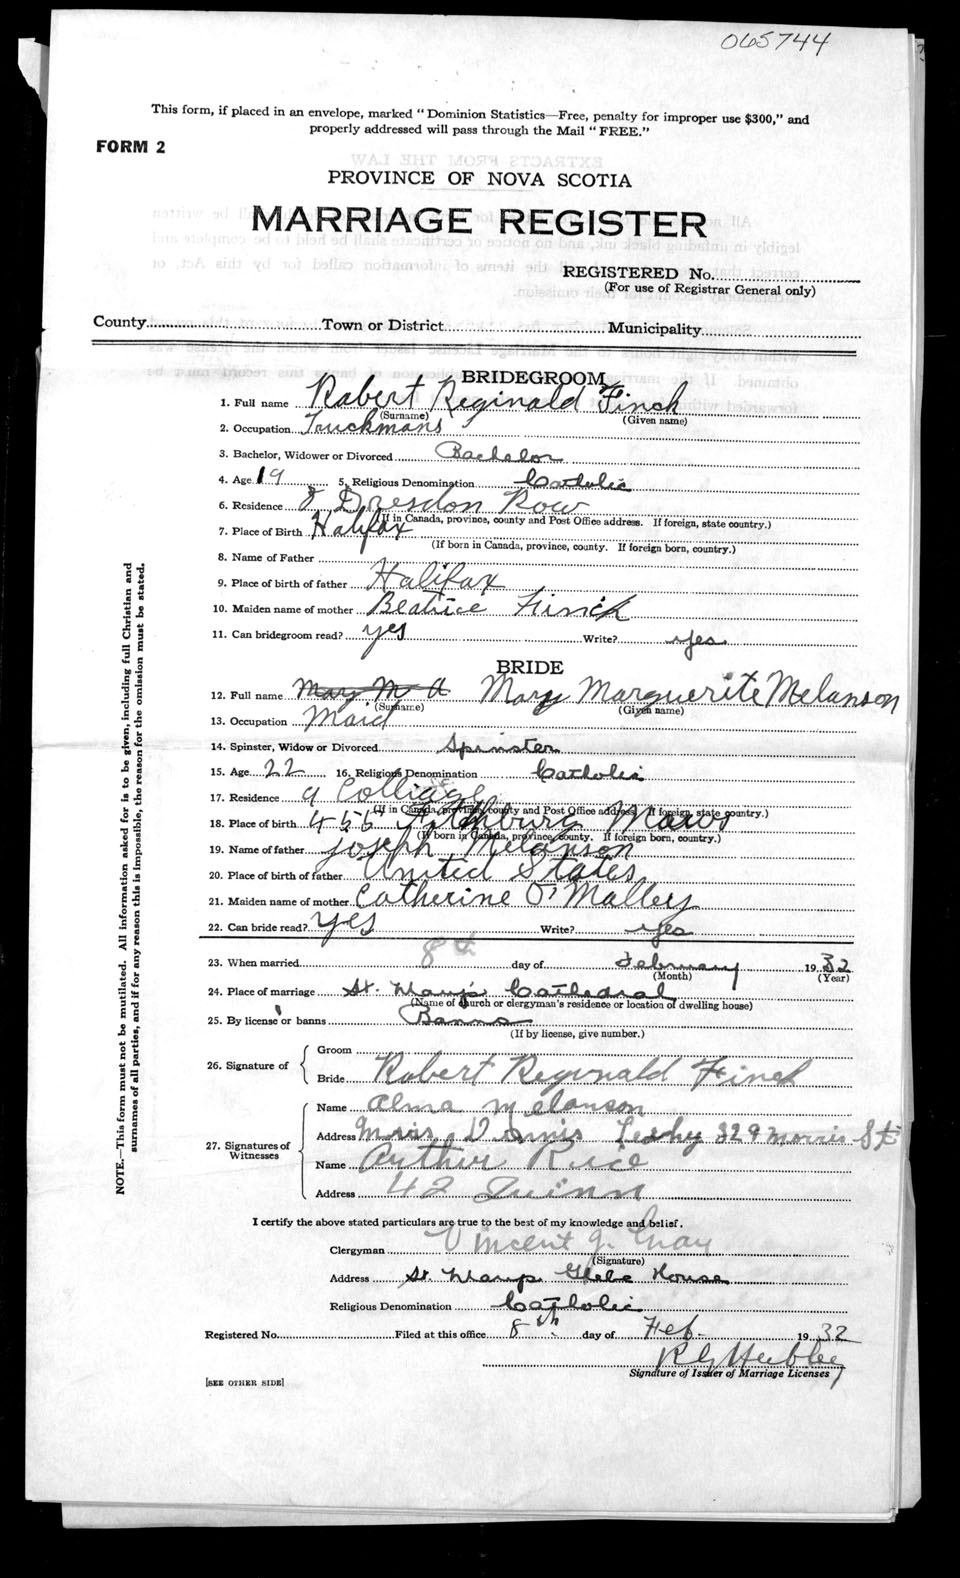 065744
This form, if placed in an envelope, marked "Dominion Statistics—Free, penalty for improper use $300," and
properly addressed will pass through the Mail "FREE."
FORM 2
PROVINCE OF NOVA SCOTIA
MARRIAGE REGISTER
REGISTERED No.
(For use of Registrar General only)
County Town or District Municipality
BRIDEGROOM
1. Full name Robert Reginald Finch
(Surname) (Given name)
2. Occupation Truckmans
3. Bachelor, Widower or Divorced Bachelor
4. Age 19 5. Religious Denomination Catholic
6. Residence 8 Dresdon Row
(If in Canada, province, county and Post Office address. If foreign, state country.)
7. Place of Birth Halifax
(If born in Canada, province, county. If foreign born, country.)
8. Name of Father
9. Place of birth of father Halifax
10. Maiden name of mother Beatrice Finch
11. Can bridegroom read? yes Write? yes
BRIDE
12. Full name Mary M A Mary Marguerite Melanson
(Surname) (Given name)
13. Occupation Maid
14. Spinster, Widow or Divorced Spinster
15. Age 22 16. Religious Denomination Catholic
17. Residence 9 Colliage
(If in Canada, province, county and Post Office address. If foreign, state country.)
18. Place of birth 455 Mass
(If born in Canada, province, county. If foreign born, country.)
19. Name of father Joseph Melanson
20. Place of birth of father United States
21. Maiden name of mother Catherine O'Malley
22. Can bride read? yes Write? yes
23. When married 8th day of February 1932
(Month) (Year)
24. Place of marriage St. Mary's Cathedral
(Name of church or clergyman's residence or location of dwelling house)
25. By license or banns Banns
(If by license, give number.)
26. Signature of Groom
Bride Robert Reginald Finch
27. Signatures of Witnesses
Name Alma Melanson
Address 329 Morris St
Name Arthur Rice
Address 42 Quinn
I certify the above stated particulars are true to the best of my knowledge and belief.
Clergyman Vincent J. Gray
(Signature)
Address St Mary's Glebe House
Religious Denomination Catholic
Registered No. Filed at this office 8th day of Feb. 1932
Signature of Issuer of Marriage Licenses
[SEE OTHER SIDE]
NOTE.—This form must not be mutilated. All information asked for is to be given, including full Christian and
surnames of all parties, and if for any reason this is impossible, the reason for the omission must be stated.